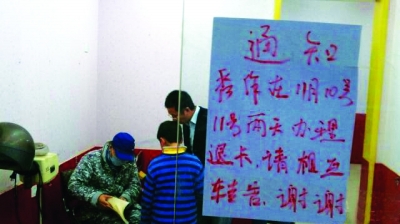 通知
长作在11月10号
11号两天办理
退卡.请相互
转告.谢谢